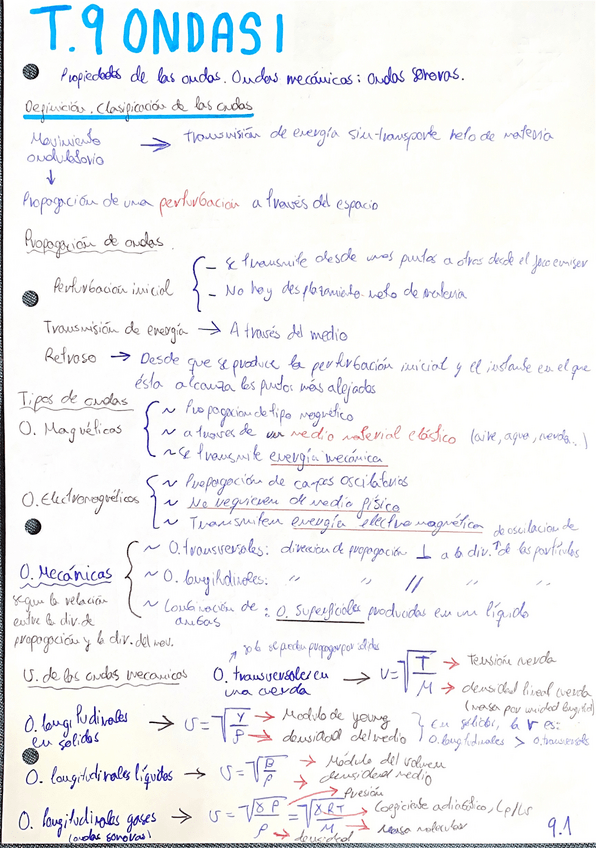 T.9 ONDAS I
Propiedades de las ondas. Ondas mecánicas: ondas sonoras.
Definición. Clasificación de las ondas
Movimiento ondulatorio → Transmisión de energía sin transporte neto de materia
↓
Propagación de una perturbación a través del espacio
Propagación de ondas.
Perturbación inicial { - Se transmite desde unos puntos a otros desde el foco emisor
- No hay desplazamiento neto de materia
Transmisión de energía → A través del medio
Retraso → Desde que se produce la perturbación inicial y el instante en el que
ésta alcanza los puntos más alejados
Tipos de ondas
O. Magnéticas { ~ Propagación de tipo magnético
~ a traves de un medio material elástico (aire, agua, cuerda..)
~ se transmite energía mecánica
O. Electromagnéticas { ~ Propagación de campos oscilatorios
~ No requieren de medio físico
~ Transmiten energía electromagnética
O. Mecánicas { ~ O. transversales: direccion de propagación ⊥ a la div. de oscilacion de las partículas
~ O. longitudinales: " " // " "
~ Combinación de ambas: O. superficiales producidas en un líquido
según la relación
entre la div. de
propagación y la div. del mov.
V. de las ondas mecanicas
→ solo se pueden propagar por sólidos
O. transversales en una cuerda → v = √T/M → Tensión cuerda
→ densidad lineal cuerda
(masa por unidad longitud)
O. longitudinales en solidos → v = √Y/ρ → Modulo de young
→ densidad del medio
} en sólidos, la v es:
O. longitudinales > O. transversales
O. longitudinales líquidos → v = √B/ρ → Módulo del volumen
→ densidad medio
O. longitudinales gases → v = √γP/ρ = √γRT/M → Coeficiente adiabático, Cp/Cv
→ presión
→ densidad
→ Masa molecular
(ondas sonoras)
9.1